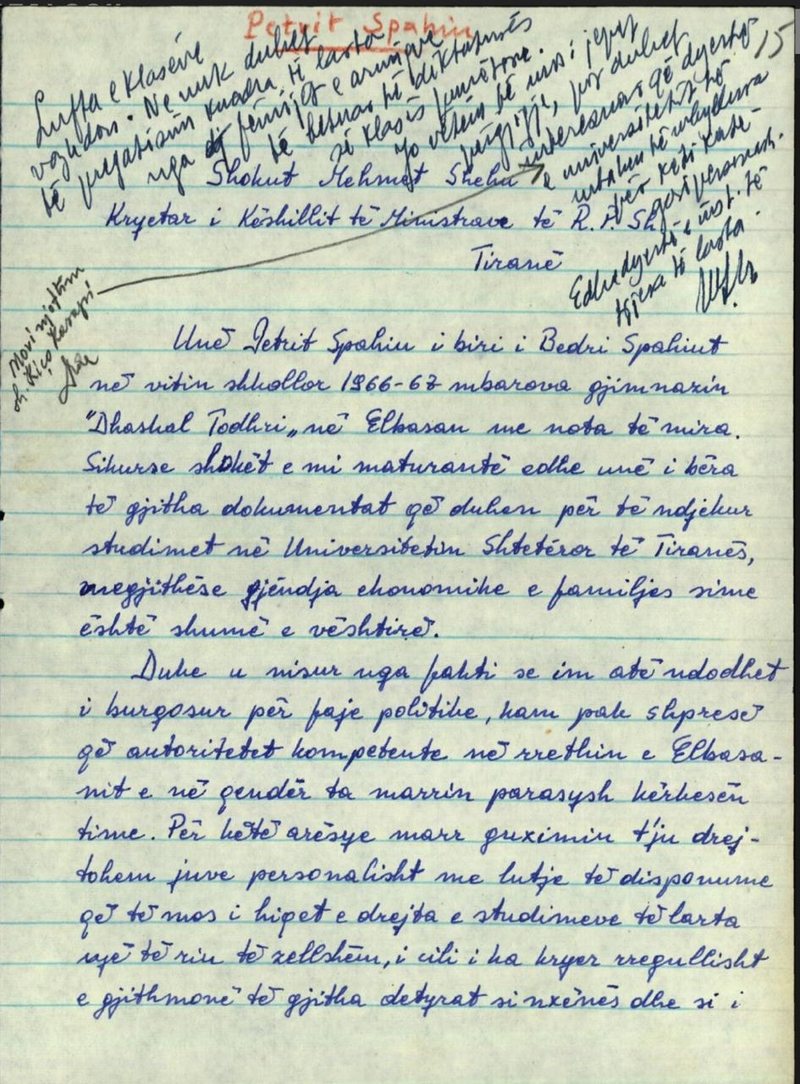 Petrit Spahiu
15
Lufta e klasëve
vazhdon. Ne nuk duhet
të pregatisim kuadra të larta
nga fëmijët e armiqve
të betuar të diktaturës
së klasës punëtore.
Jo vetëm të mos i jepet
përgjigje, por duhet
interesuar që dyert
e universitetit të
mbahen të mbyllura
për këtë kate-
gori personash.
Edhe dyert e inst. të
tjera të larta.
Shokut Mehmet Shehu
Kryetar i Këshillit të Ministrave të R. P. Sh.
Tiranë
Mori njoftim
sh. Kiço Kasapi
Unë Petrit Spahiu i biri i Bedri Spahiut
në vitin shkollor 1966-67 mbarova gjimnazin
"Dhaskal Todhri„ në Elbasan me nota të mira.
Sikurse shokët e mi maturantë edhe unë i bëra
të gjitha dokumentat që duhen për të ndjekur
studimet në Universitetin Shtetëror të Tiranës,
megjithëse gjëndja ekonomike e familjes sime
është shumë e vështirë.
Duke u nisur nga fakti se im atë ndodhet
i burgosur për faje politike, kam pak shpresë
që autoritetet kompetente në rrethin e Elbasa-
nit e në qendër ta marrin parasysh kërkesën
time. Për këtë arësye marr guximin t'ju drej-
tohem juve personalisht me lutje të disponume
që të mos i hiqet e drejta e studimeve të larta
një të riu të zellshëm, i cili i ka kryer rregullisht
e gjithmonë të gjitha detyrat si nxënës dhe si i